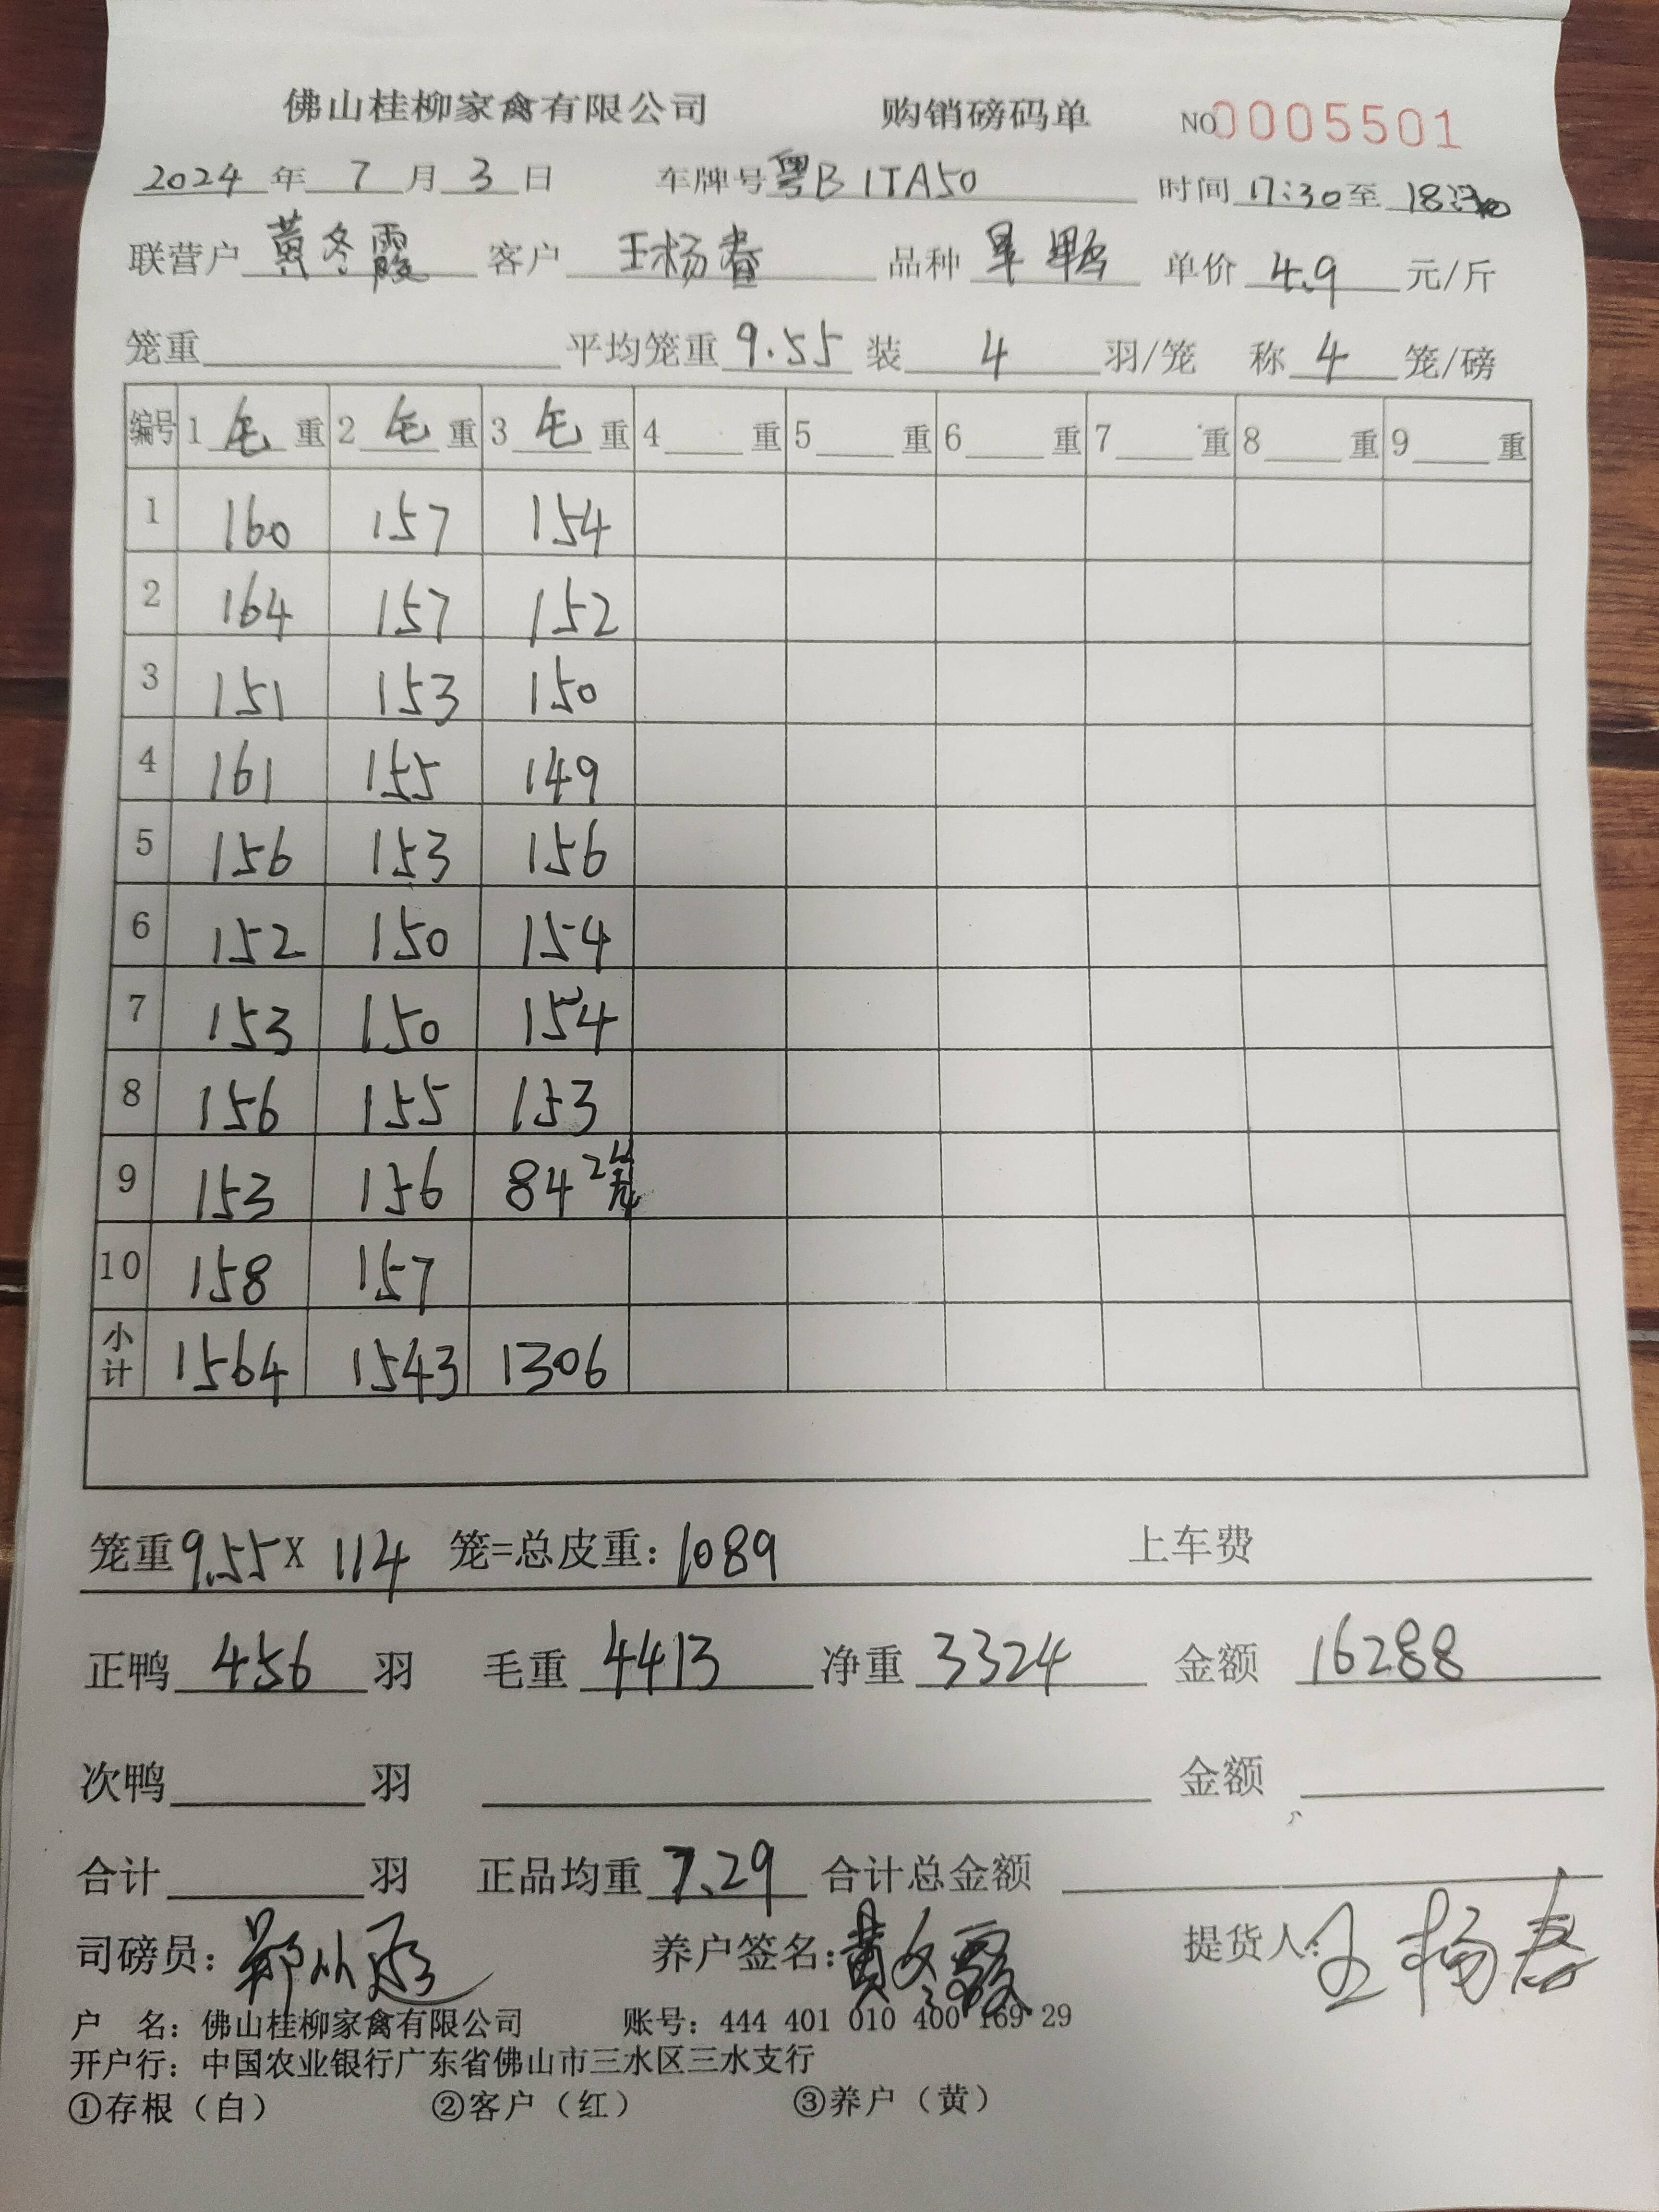 佛山桂柳家禽有限公司 购销磅码单 NO0005501
2024年7月3日 车牌号粤B 1TA50 时间17:30至18:
联营户 黄冬霞 客户 王杨春 品种 单价 4.9 元/斤
笼重 平均笼重 9.55 装 4 羽/笼 称 4 笼/磅
编号 1 毛 重 2 毛 重 3 毛 重 4 重 5 重 6 重 7 重 8 重 9 重
1 160 157 154
2 164 157 152
3 151 153 150
4 161 155 149
5 156 153 156
6 152 150 154
7 153 150 154
8 156 155 153
9 153 156 84 2笼
10 158 157
小计 1564 1543 1306
笼重9.55X 114 笼=总皮重: 1089 上车费
正鸭 456 羽 毛重 4413 净重 3324 金额 16288
次鸭 羽 金额
合计 羽 正品均重 7.29 合计总金额
司磅员: 养户签名: 黄冬霞 提货人: 王杨春
户 名: 佛山桂柳家禽有限公司 账号: 444 401 010 400 169 29
开户行: 中国农业银行广东省佛山市三水区三水支行
①存根（白） ②客户（红） ③养户（黄）